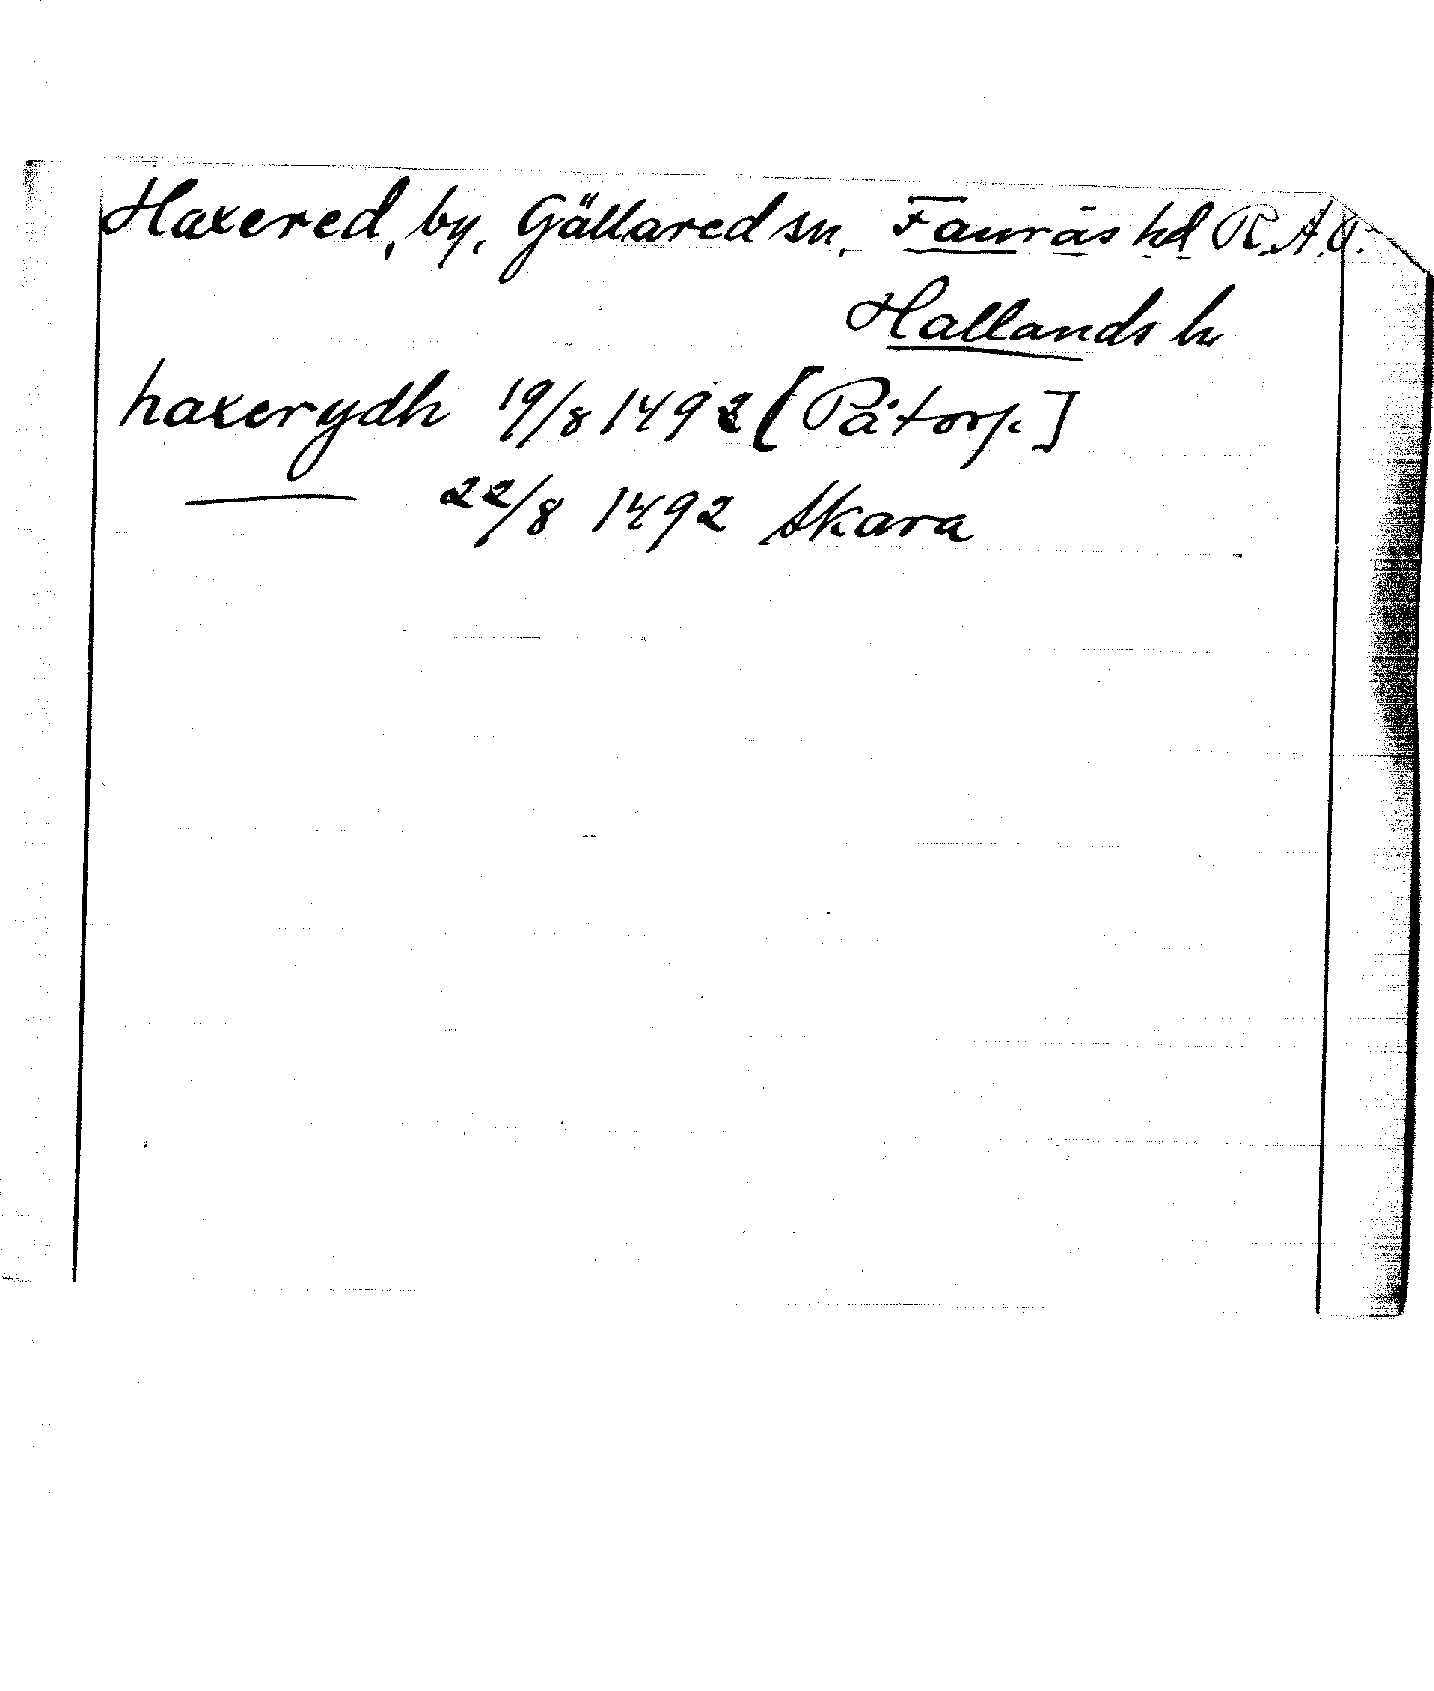 Haxered, by, Gällared sn, Faurås hd R.A.O.
Hallands l.
haxerydh 19/8 1492 [Påtorp.]
22/8 1492 Skara